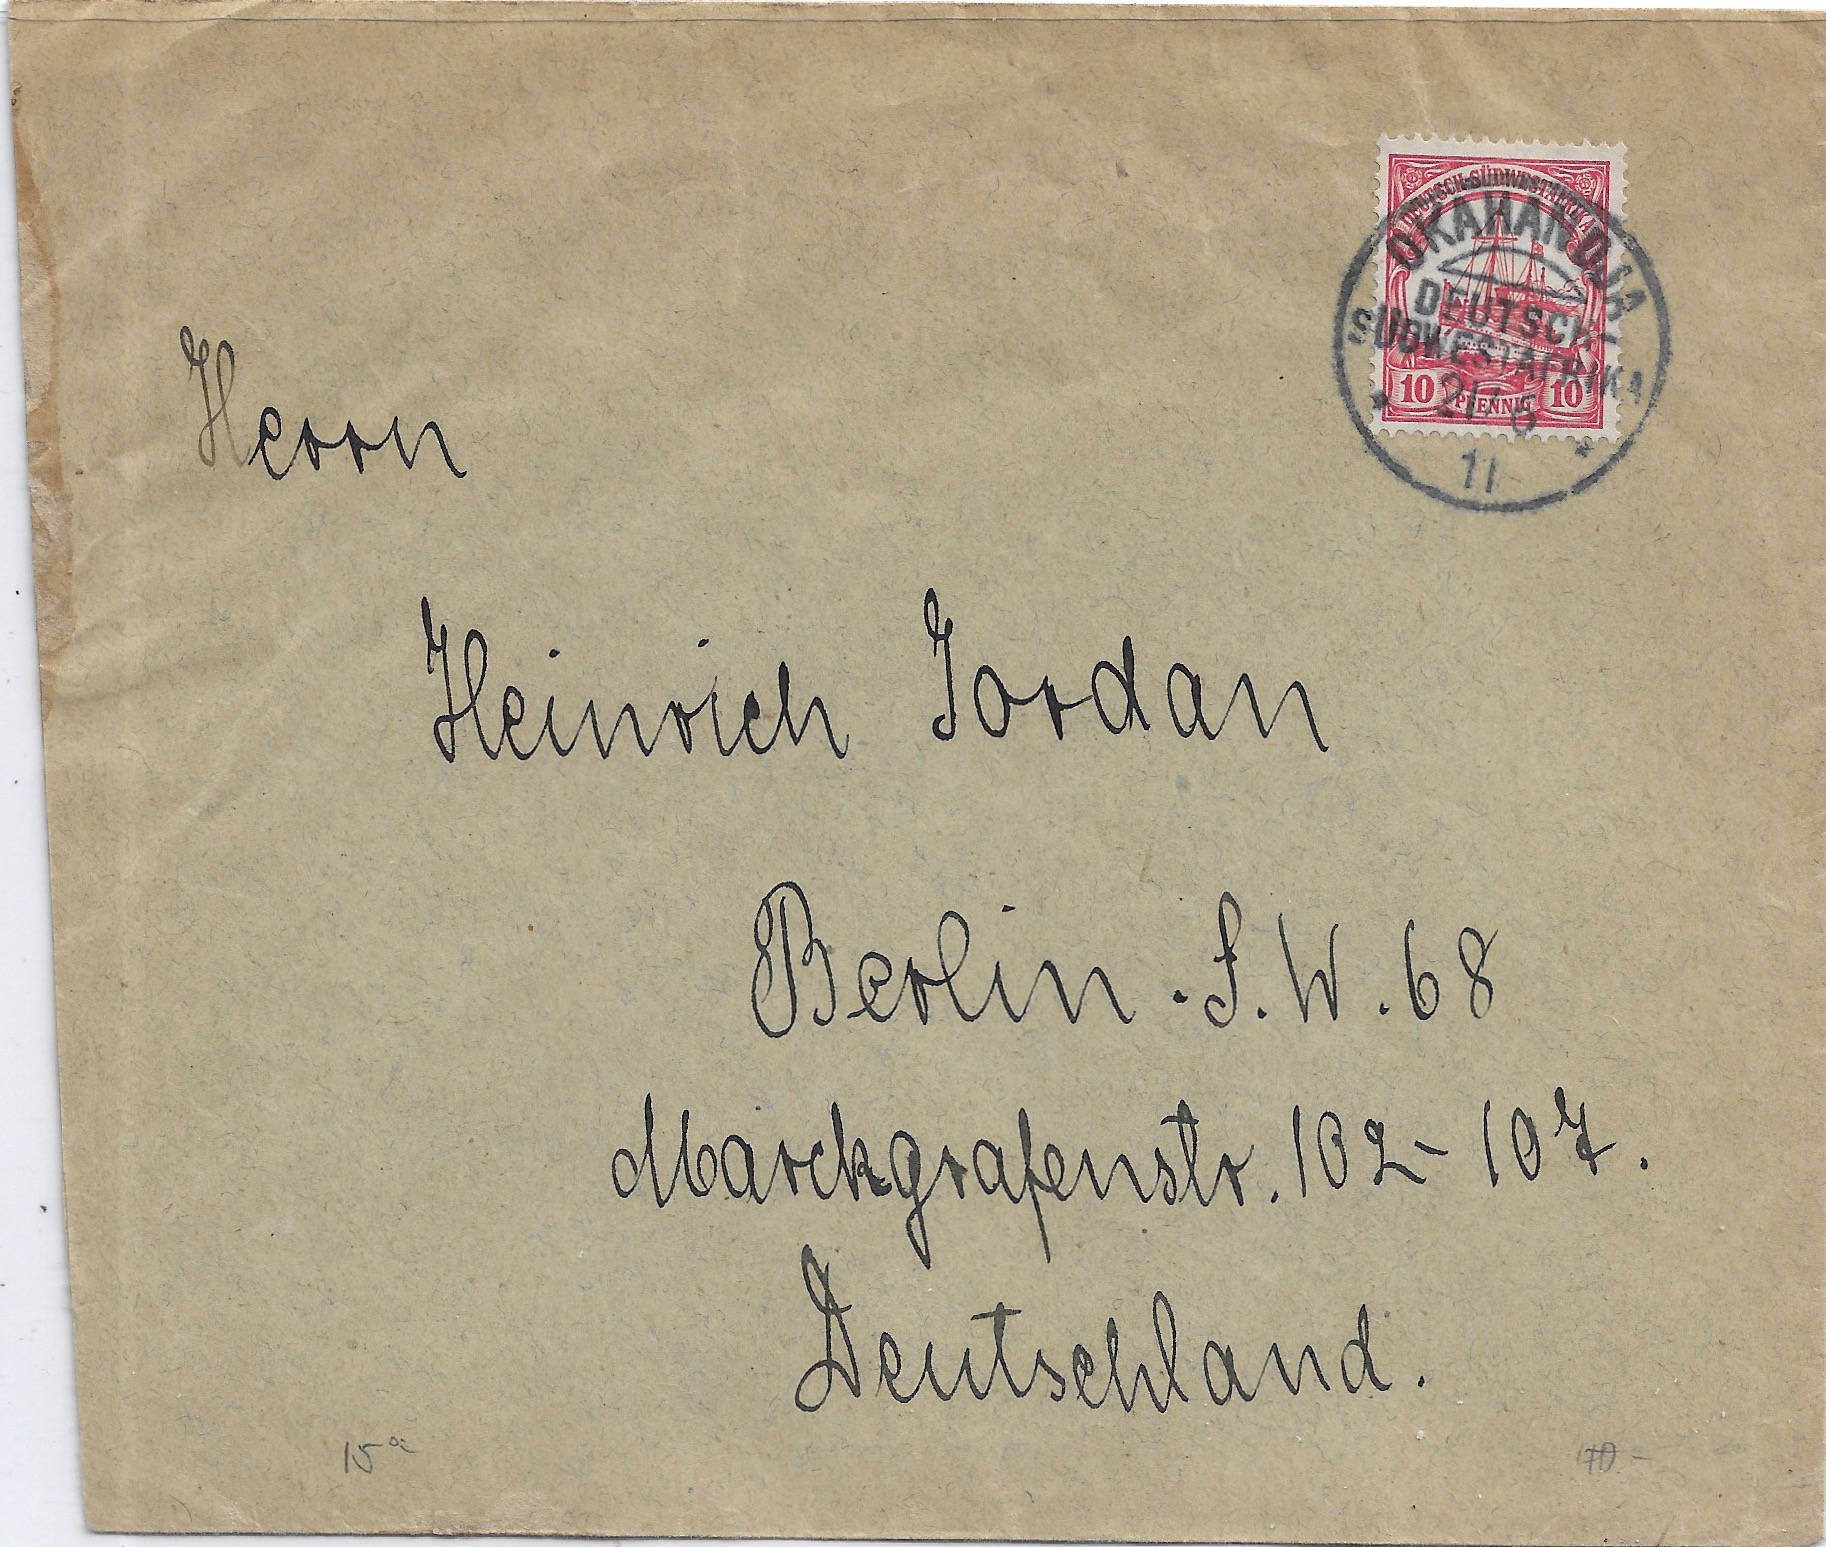 DEUTSCH-SÜDWESTAFRIKA
10 PFENNIG 10
OKAHANDJA
DEUTSCH-
SÜDWESTAFRIKA
21/5
11
Herrn
Heinrich Jordan
Berlin. S. W. 68
Marckgrafenstr. 102-107.
Deutschland.
15a